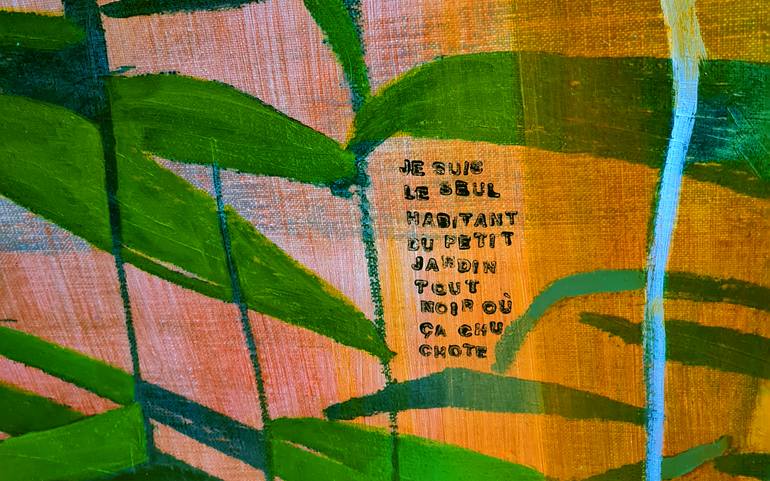 JE SUIS
LE SEUL
HABITANT
DU PETIT
JARDIN
TOUT
NOIR OÙ
ÇA CHU
CHOTE